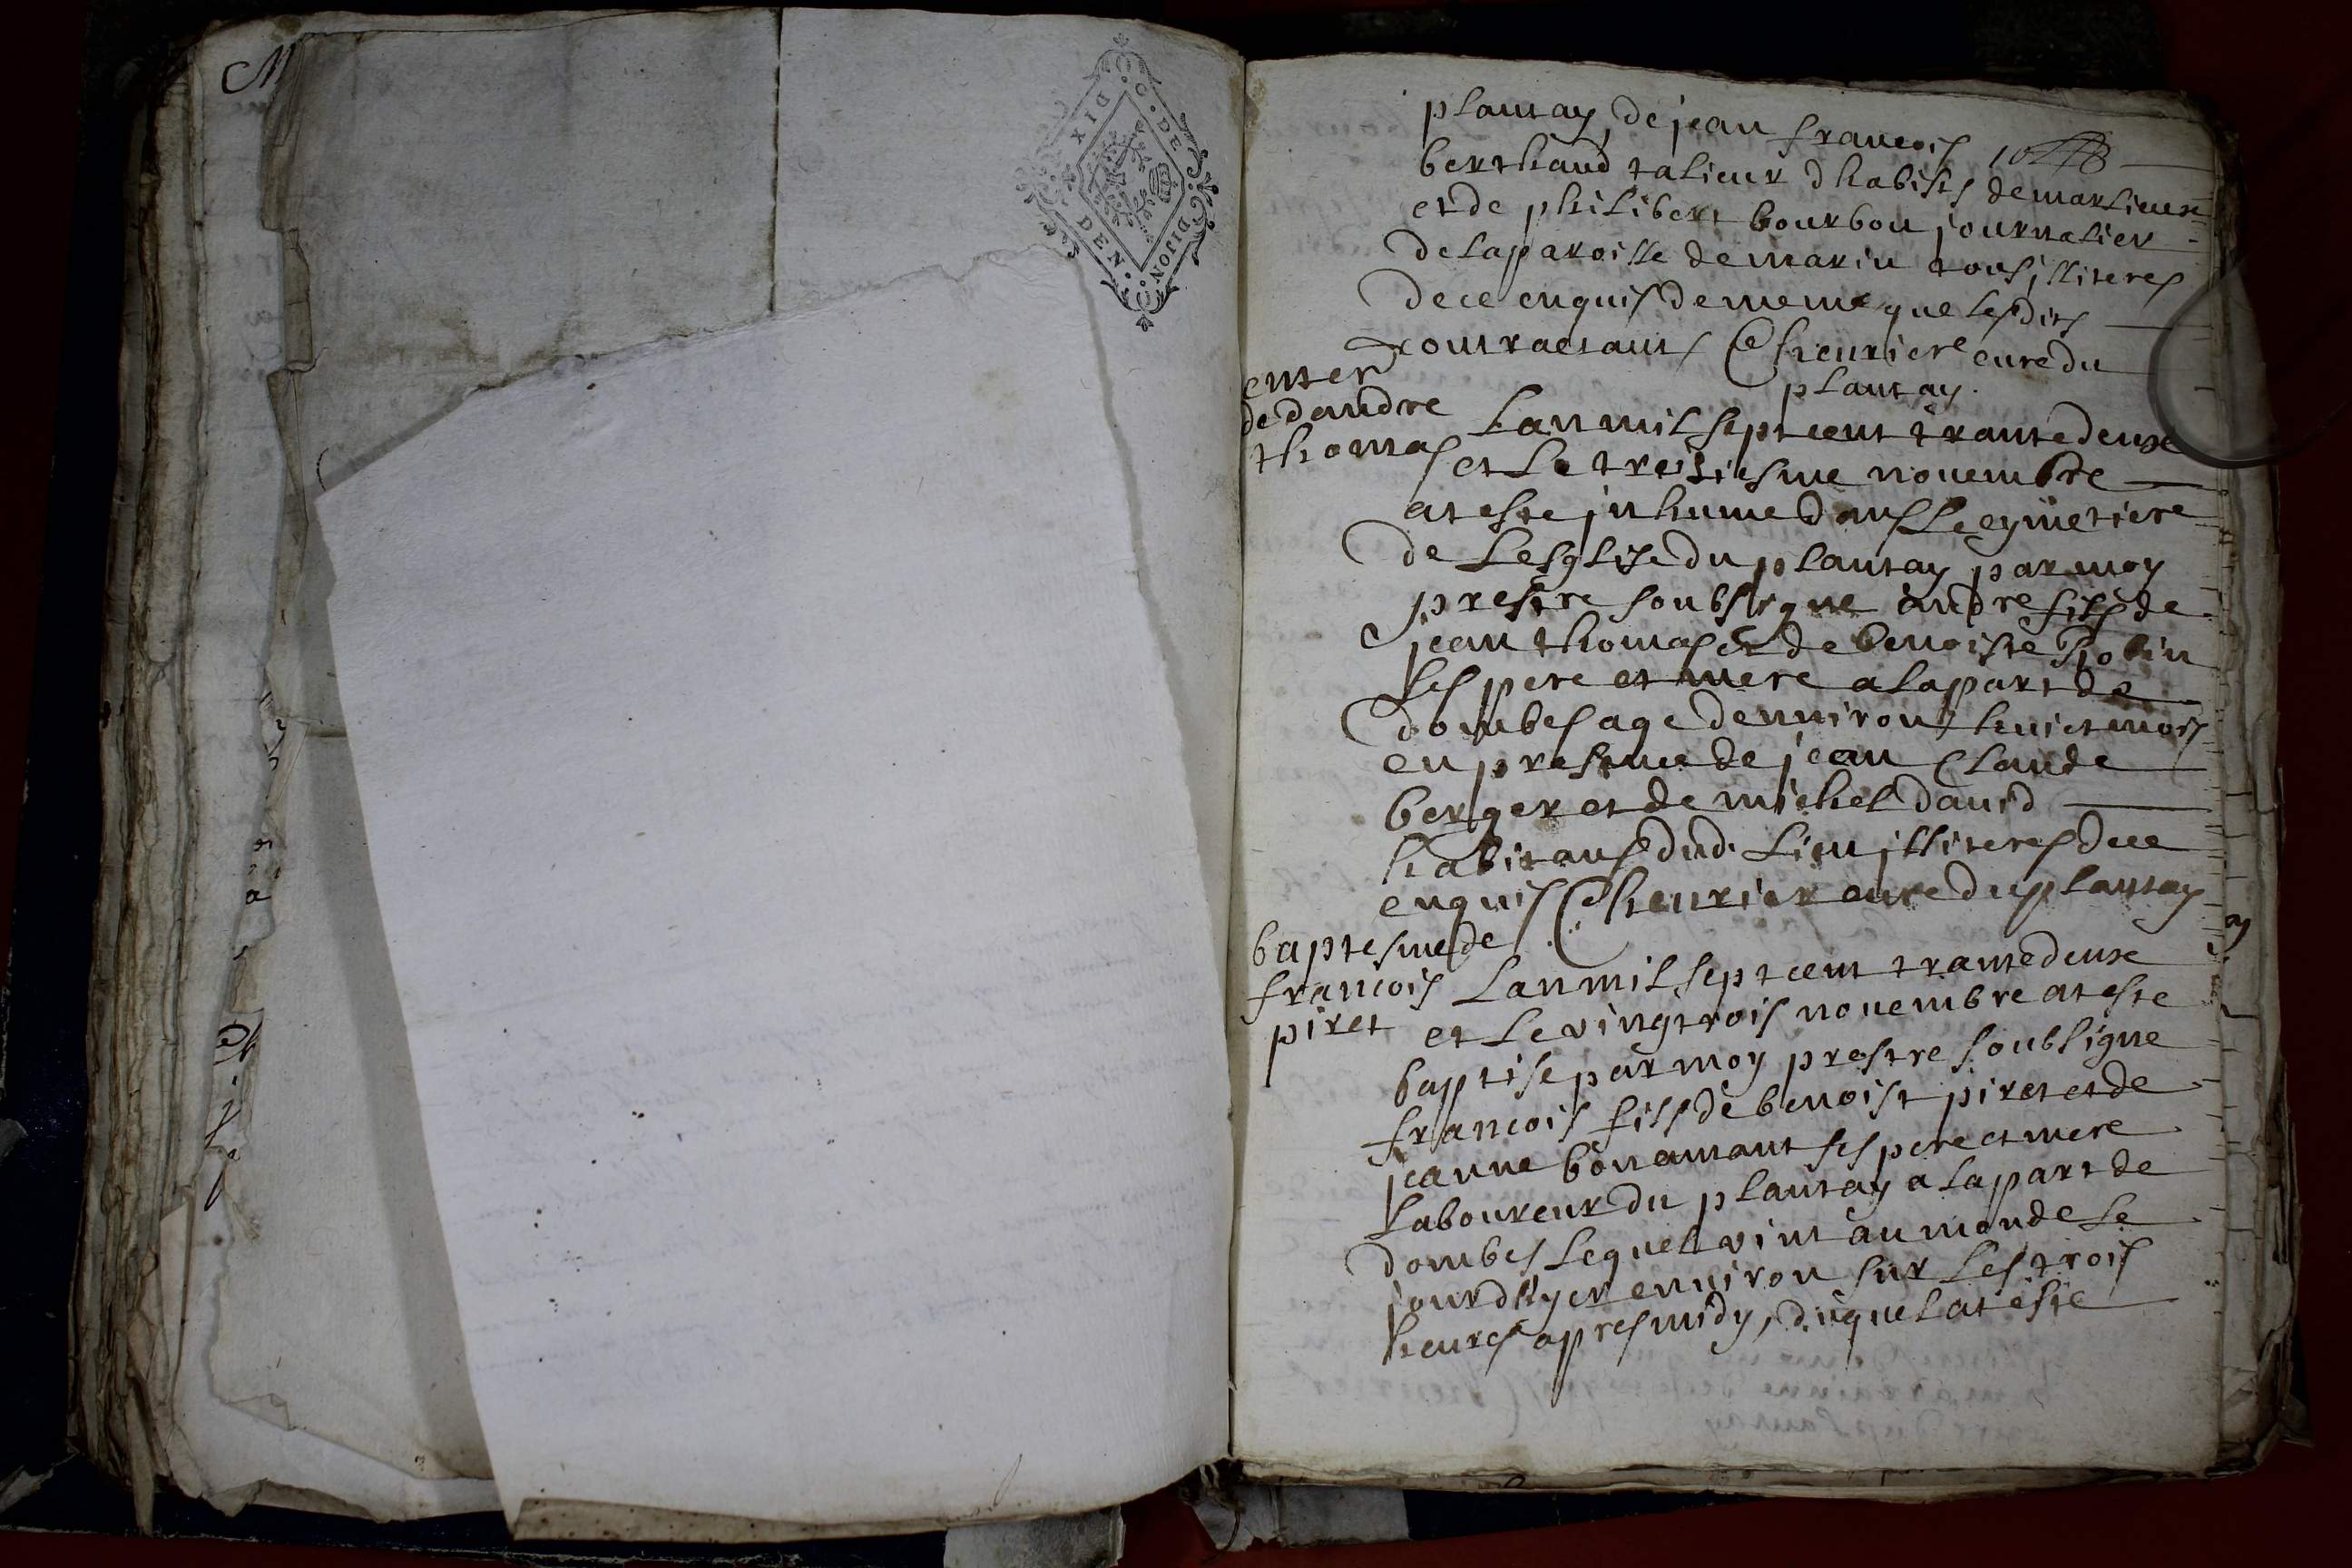 C. DE DIJON
DIX DEN.
plantay, de jean francois
berthaud talieur dhabits demarlieux
et de philibert bourbon journalier
de la paroisse de marin tous illiteres
de ce enquis de meme que lesdits
contractans Cheuriere cure du
plantay.
enter
dedandre
thomas
Lan mil sept cent trante deux
et le treisiesme nouembre
at este inhume dans le cymetiere
de lesglise du plantay par moy
prestre soubsigne andre fils de
jean thomas et de benoiste Robin
ses pere et mere a la part de
dombes age denuiron huict mois
en presence de jean Claude
berger et de michel dauid
habitans dud. lieu illiteres de ce
enquis Cheurier cure du plantay
baptesme de
francois
piret
Lan mil sept cent trante deux
et le vingt trois nouembre at este
baptise par moy prestre soubsigne
francois fils de benoist piret et de
jeanne bonamant ses pere et mere
laboureur du plantay a la part de
dombes lequel vint au monde le
jour dhyer enuiron sur les trois
heures apres midy, duquel at este